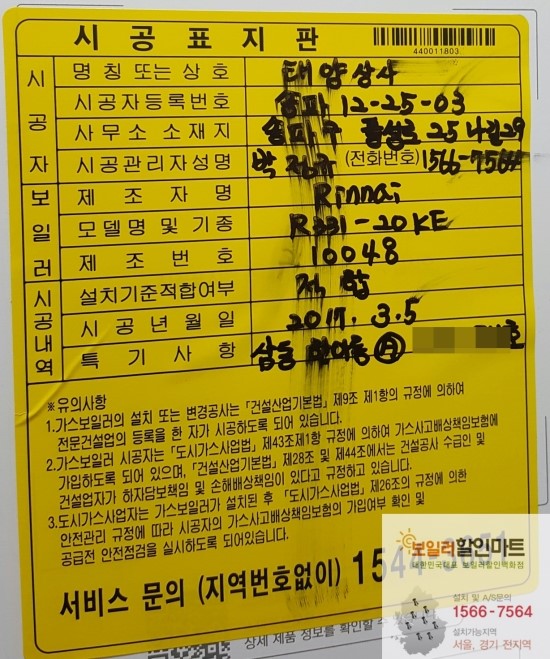 시공표지판
440011803
시공자
명칭 또는 상호 태양상사
시공자등록번호 송파 12-25-03
사무소 소재지 송파구 25 나길29
시공관리자성명 박정규 (전화번호) 1566-7564
보일러
제조자명 Rinnai
모델명 및 기종 R331-20KE
제조번호 10048
시공내역
설치기준적합여부 적합
시공년월일 2017. 3. 5
특기사항 삼동
※유의사항
1.가스보일러의 설치 또는 변경공사는「건설산업기본법」제9조 제1항의 규정에 의하여
전문건설업의 등록을 한 자가 시공하도록 되어 있습니다.
2.가스보일러 시공자는「도시가스사업법」제43조제1항 규정에 의하여 가스사고배상책임보험에
가입하도록 되어 있으며,「건설산업기본법」제28조 및 제44조에서는 건설공사 수급인 및
건설업자가 하자담보책임 및 손해배상책임이 있다고 규정하고 있습니다.
3.도시가스사업자는 가스보일러가 설치된 후 「도시가스사업법」제26조의 규정에 의한
안전관리 규정에 따라 시공자의 가스사고배상책임보험의 가입여부 확인 및
공급전 안전점검을 실시하도록 되어있습니다.
서비스 문의 (지역번호없이) 1544-3651
상세 제품 정보를 확인할 수
보일러할인마트
대한민국대표 보일러할인백화점
설치 및 A/S문의
1566-7564
설치가능지역
서울, 경기 전지역